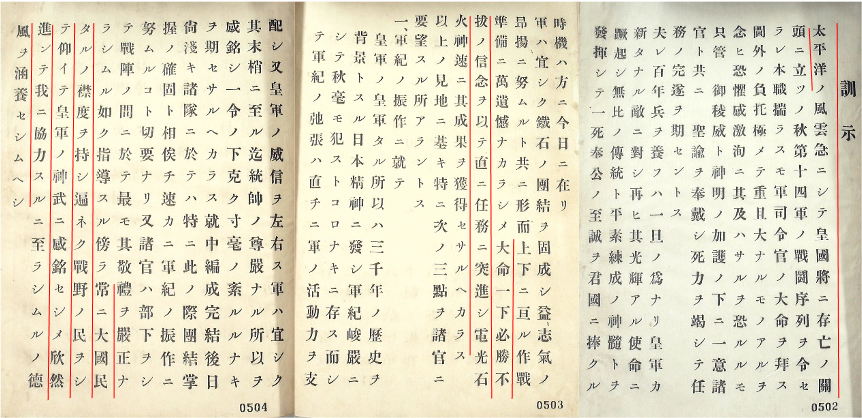 訓示
太平洋ノ風雲急ニシテ皇國將ニ存亡ノ關
頭ニ立ツノ秋第十四軍ノ戰鬪序列ヲ令セ
ラレ本職揣ラスモ軍司令官ノ大命ヲ拜ス
閫外ノ負托極メテ重且大ナルモノアルヲ
念ヒ恐懼感激洵ニ其及ハサルヲ恐ルルモ
只管 御稜威ト神明ノ加護ノ下ニ一意諸
官ト共ニ 聖諭ヲ奉戴シ死力ヲ竭シテ任
務ノ完遂ヲ期セントス
夫レ百年兵ヲ養フハ一旦ノ爲ナリ皇軍カ
新タナル敵ニ對シ再ヒ其光輝アル使命ニ
蹶起シ無比ノ傳統ト平素練成ノ神髓トヲ
發揮シテ一死奉公ノ至誠ヲ君國ニ捧クル
0502
時機ハ方ニ今日ニ在リ
軍ハ宜シク鐵石ノ團結ヲ固成シ益志氣ノ
昂揚ニ努ムルト共ニ形而上下ニ亘ル作戰
準備ニ萬遺憾ナカラシメ大命一下必勝不
拔ノ信念ヲ以テ直ニ任務ニ突進シ電光石
火神速ニ其成果ヲ獲得セサルヘカラス
以上ノ見地ニ基キ特ニ次ノ三點ヲ諸官ニ
要望スル所アラントス
一、軍紀ノ振作ニ就テ
皇軍ノ皇軍タル所以ハ三千年ノ歷史ヲ
背景トスル日本精神ニ發シ軍紀峻嚴ニ
シテ秋毫モ犯ストコロナキニ存ス而シ
テ軍紀ノ弛張ハ直チニ軍ノ活動力ヲ支
0503
配シ又皇軍ノ威信ヲ左右ス軍ハ宜シク
其末梢ニ至ル迄統帥ノ尊嚴ナル所以ヲ
感銘シ一令ノ下克ク寸毫ノ紊ルルナキ
ヲ期セサルヘカラス就中編成完結後日
尙淺キ諸隊ニ於テハ特ニ此ノ際團結掌
握ノ確固ト相俟チ速カニ軍紀ノ振作ニ
努ムルコト切要ナリ又諸官ハ部下ヲシ
テ戰陣ノ間ニ於テ最モ其敬禮ヲ嚴正ナ
ラシムル如ク指導スル傍ラ常ニ大國民
タルノ襟度ヲ持シ遍ネク戰野ノ民ヲシ
テ仰イテ皇軍ノ神武ニ感銘セシメ欣然
進ンテ我ニ協力スルニ至ラシムルノ德
風ヲ涵養セシムヘシ
0504